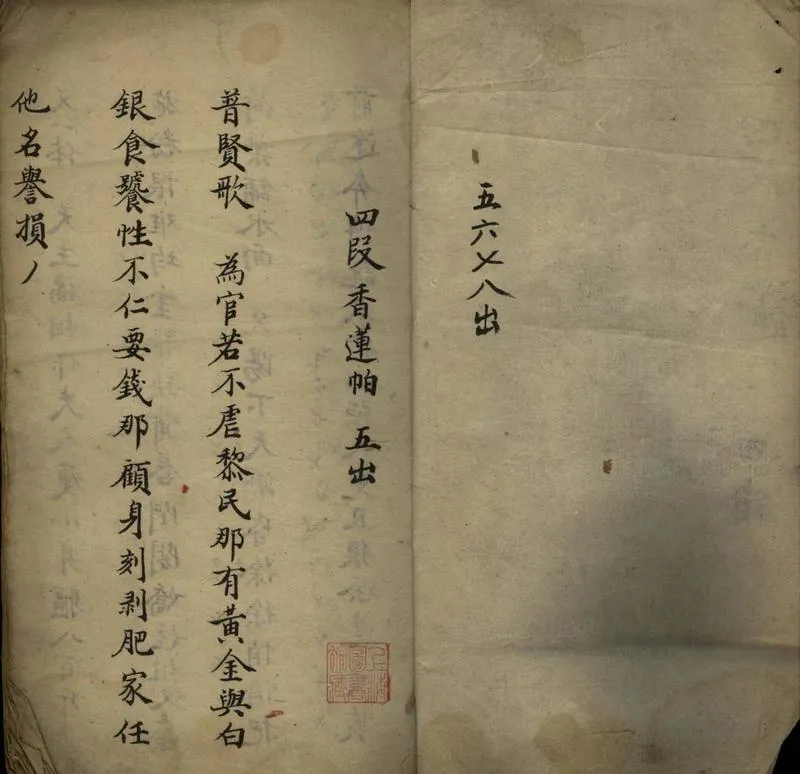 五六七八出
四段香蓮帕 五出
普賢歌 為官若不虐黎民那有黃金與白
銀食饕性不仁要錢那顧身刻剥肥家任
他名譽損丿
上海
圖書
館藏